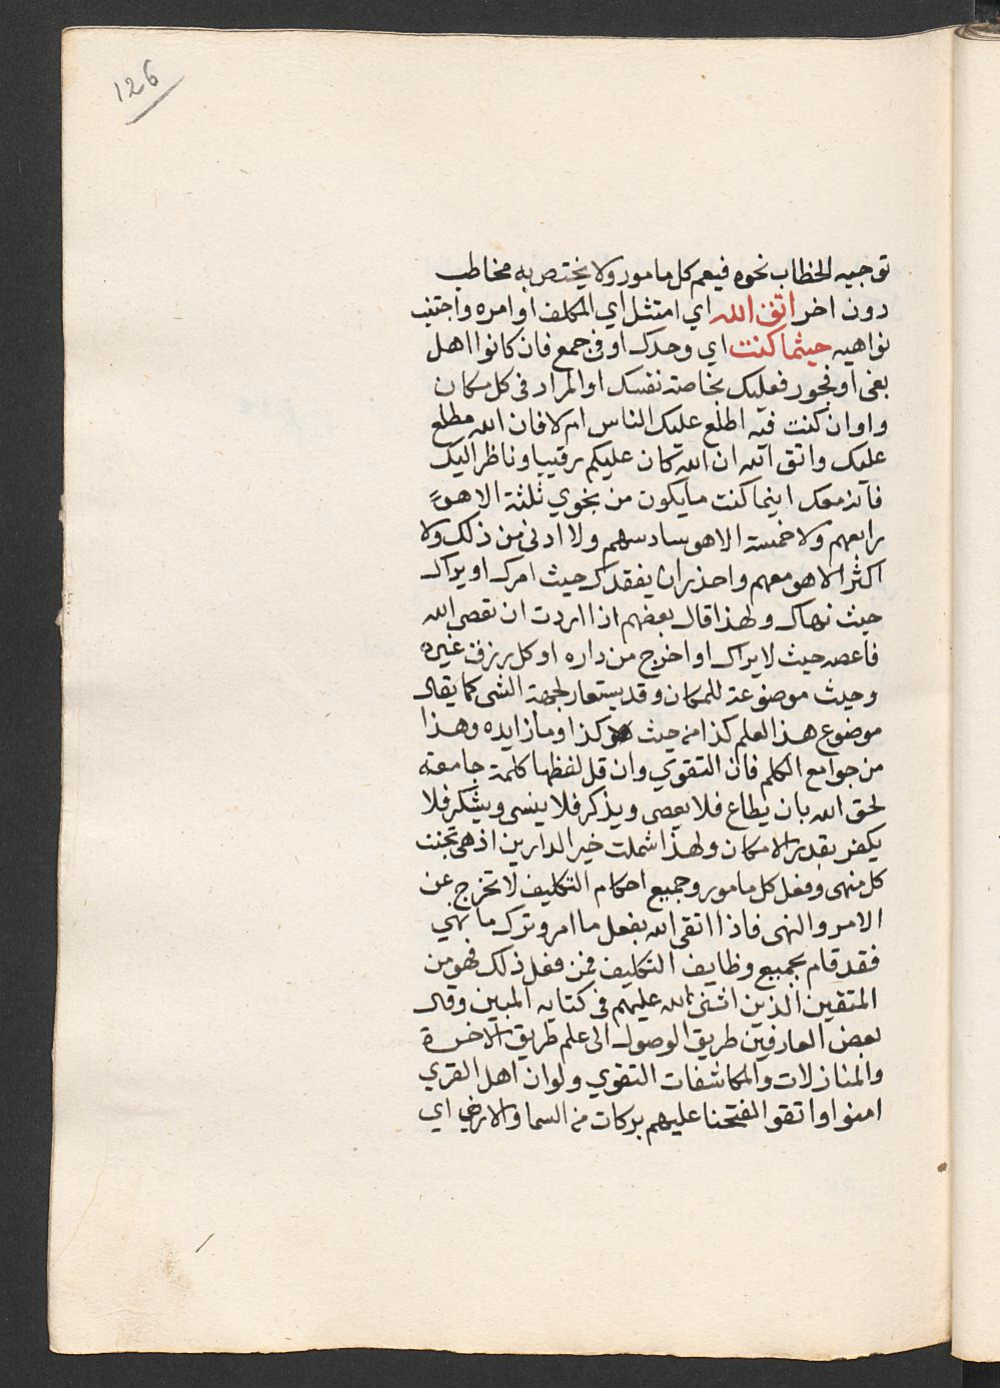 126
توجيه الخطاب نحوه فيعم كل مامور ولا يختص به مخاطب
دون اخر اتق الله اي امتثل اي المكلف اوامره واجتنب
نواهيه حيثما كنت اي وحدك او في جمع فان كانوا اهل
بغي او فجور فعليك بخاصة نفسك او المراد في كل مكان
واوان كنت فيه اطلع عليك الناس ام لا فان الله مطلع
عليك واتق الله ان الله كان عليكم رقيبا وناظر اليك
فانه معك اينما كنت ما يكون من نجوي ثلثة الا هو
رابعهم ولا خمسة الا هو سادسهم ولا ادنى من ذلك ولا
اكثر الا هو معهم واحذر ان يفقدك حيث امرك او يراك
حيث نهاك ولهذا قال بعضهم اذا اردت ان تعصى الله
فاعصه حيث لا يراك او اخرج من داره او كل برزق غيره
وحيث موضوعة للمكان وقد يستعار لجهة الشي كما يقال
موضوع هذا العلم كذا من حيث هو كذا وما زايده وهذا
من جوامع الكلم فان التقوي وان قل لفظها كلمة جامعة
لحق الله بان يطاع فلا يعصى ويذكر فلا ينسى ويشكر فلا
يكفر بقدر الامكان ولهذا شملت خير الدارين اذ هي تجنب
كل منهى وفعل كل مامور وجميع احكام التكليف لا تخرج عن
الامر والنهى فاذا اتقى الله بفعل ما امر وترك ما نهي
فقد قام بجميع وظايف التكليف فمن فعل ذلك فهو من
المتقين الذين اثنى الله عليهم في كتابه المبين وقال
بعض العارفين طريق الوصول الى علم طريق الاخرة
والمنازلات والمكاشفات التقوي ولو ان اهل القري
امنوا واتقوا لفتحنا عليهم بركات من السما والارض اي